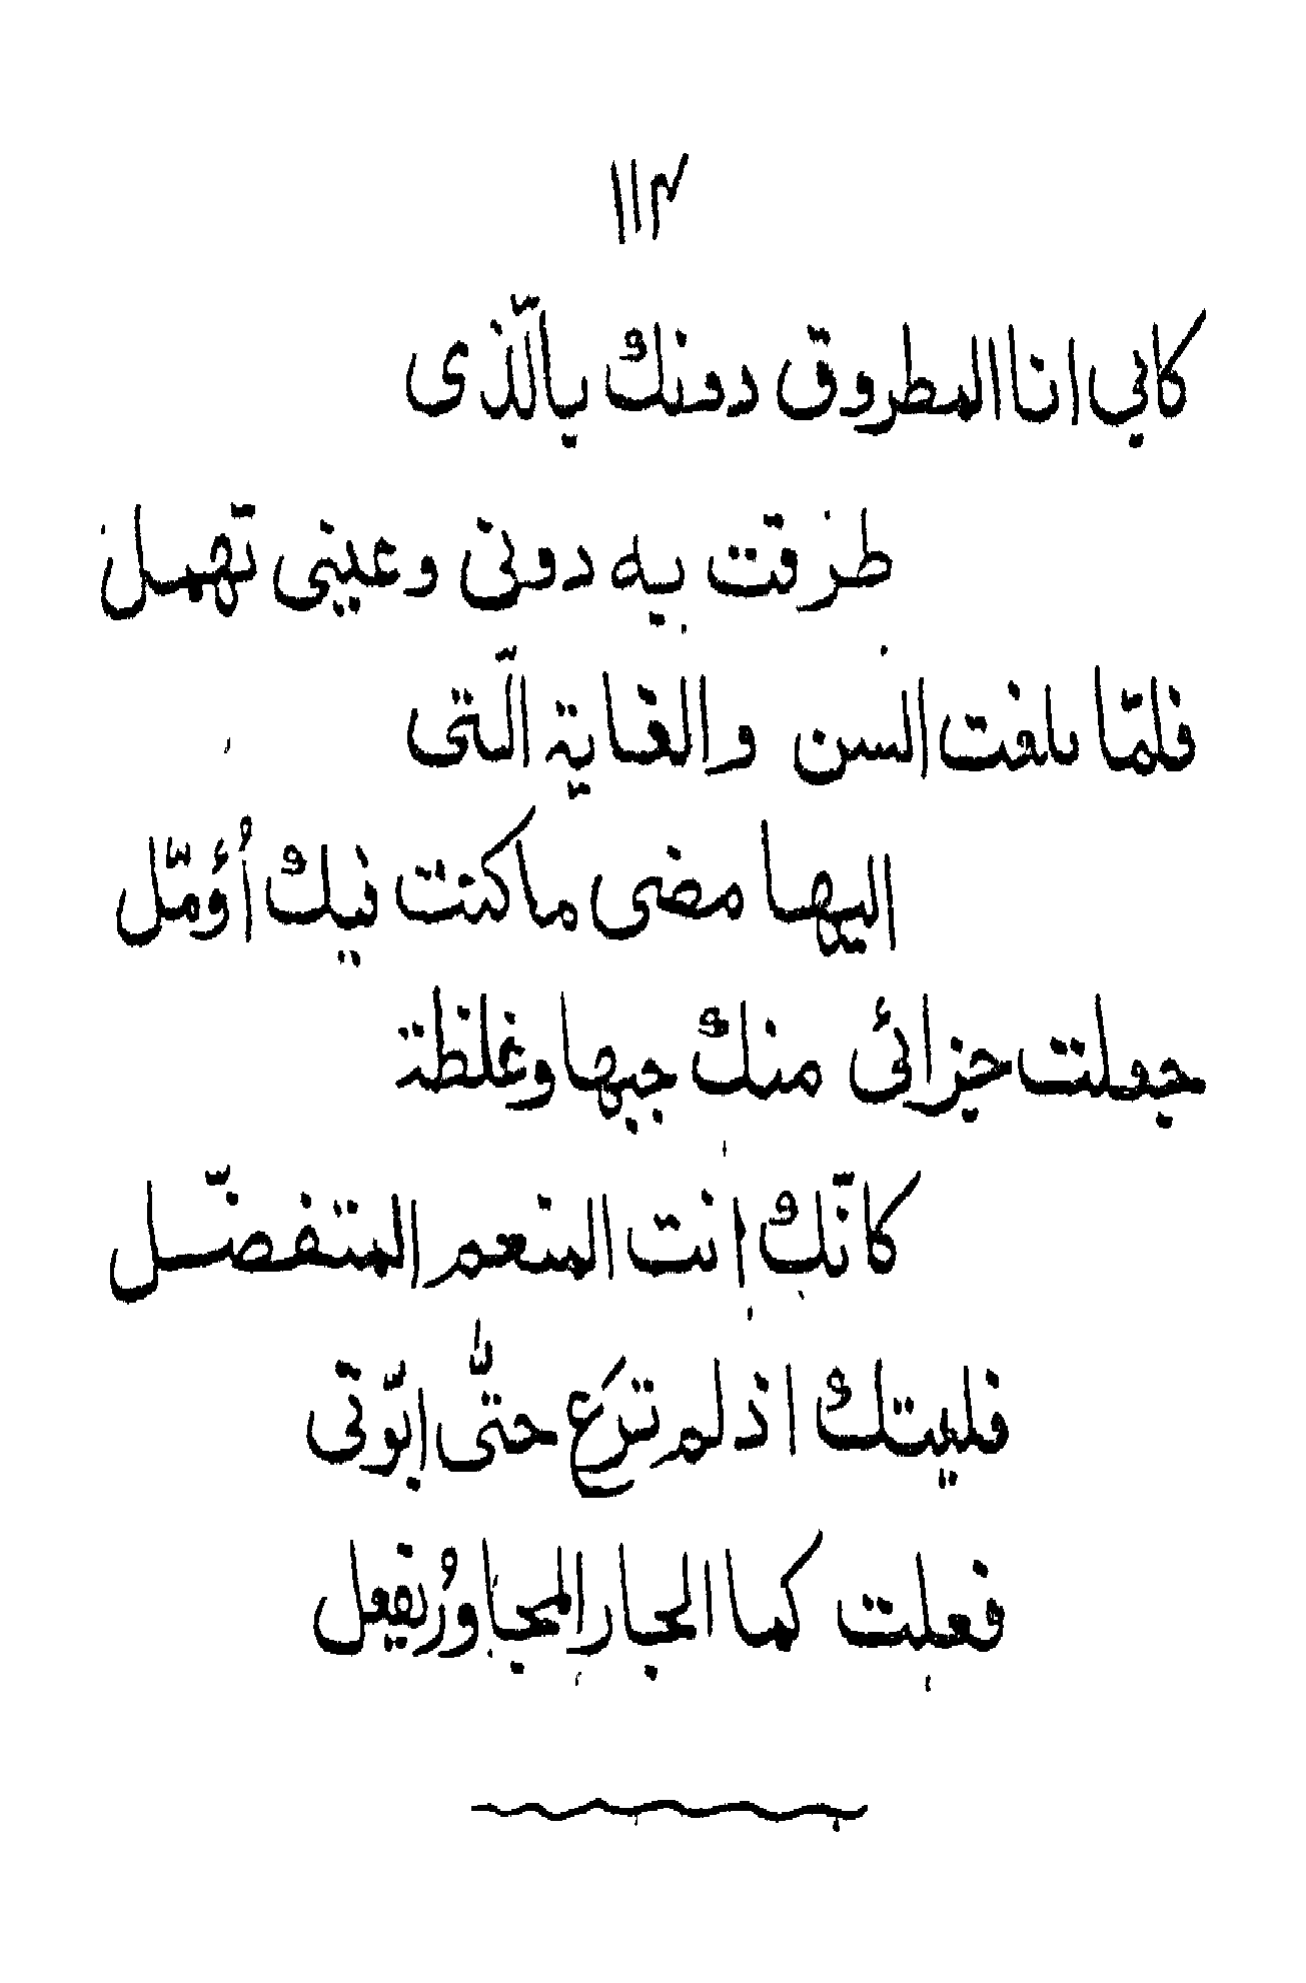 ١١٣
كاني انا المطروق دونك بالّذى
طرقت به دونى وعينى تهمل
فلمّا بلغت السن والغاية الّتى
اليها مضى ما كنت فيك أُؤمّل
جعلت جزائى منك جبها وغلظة
كانّك انت المنعم المتفضّل
فليتك اذ لم ترع حتّى ابوّتى
فعلت كما الجار المجاورُ يفعل